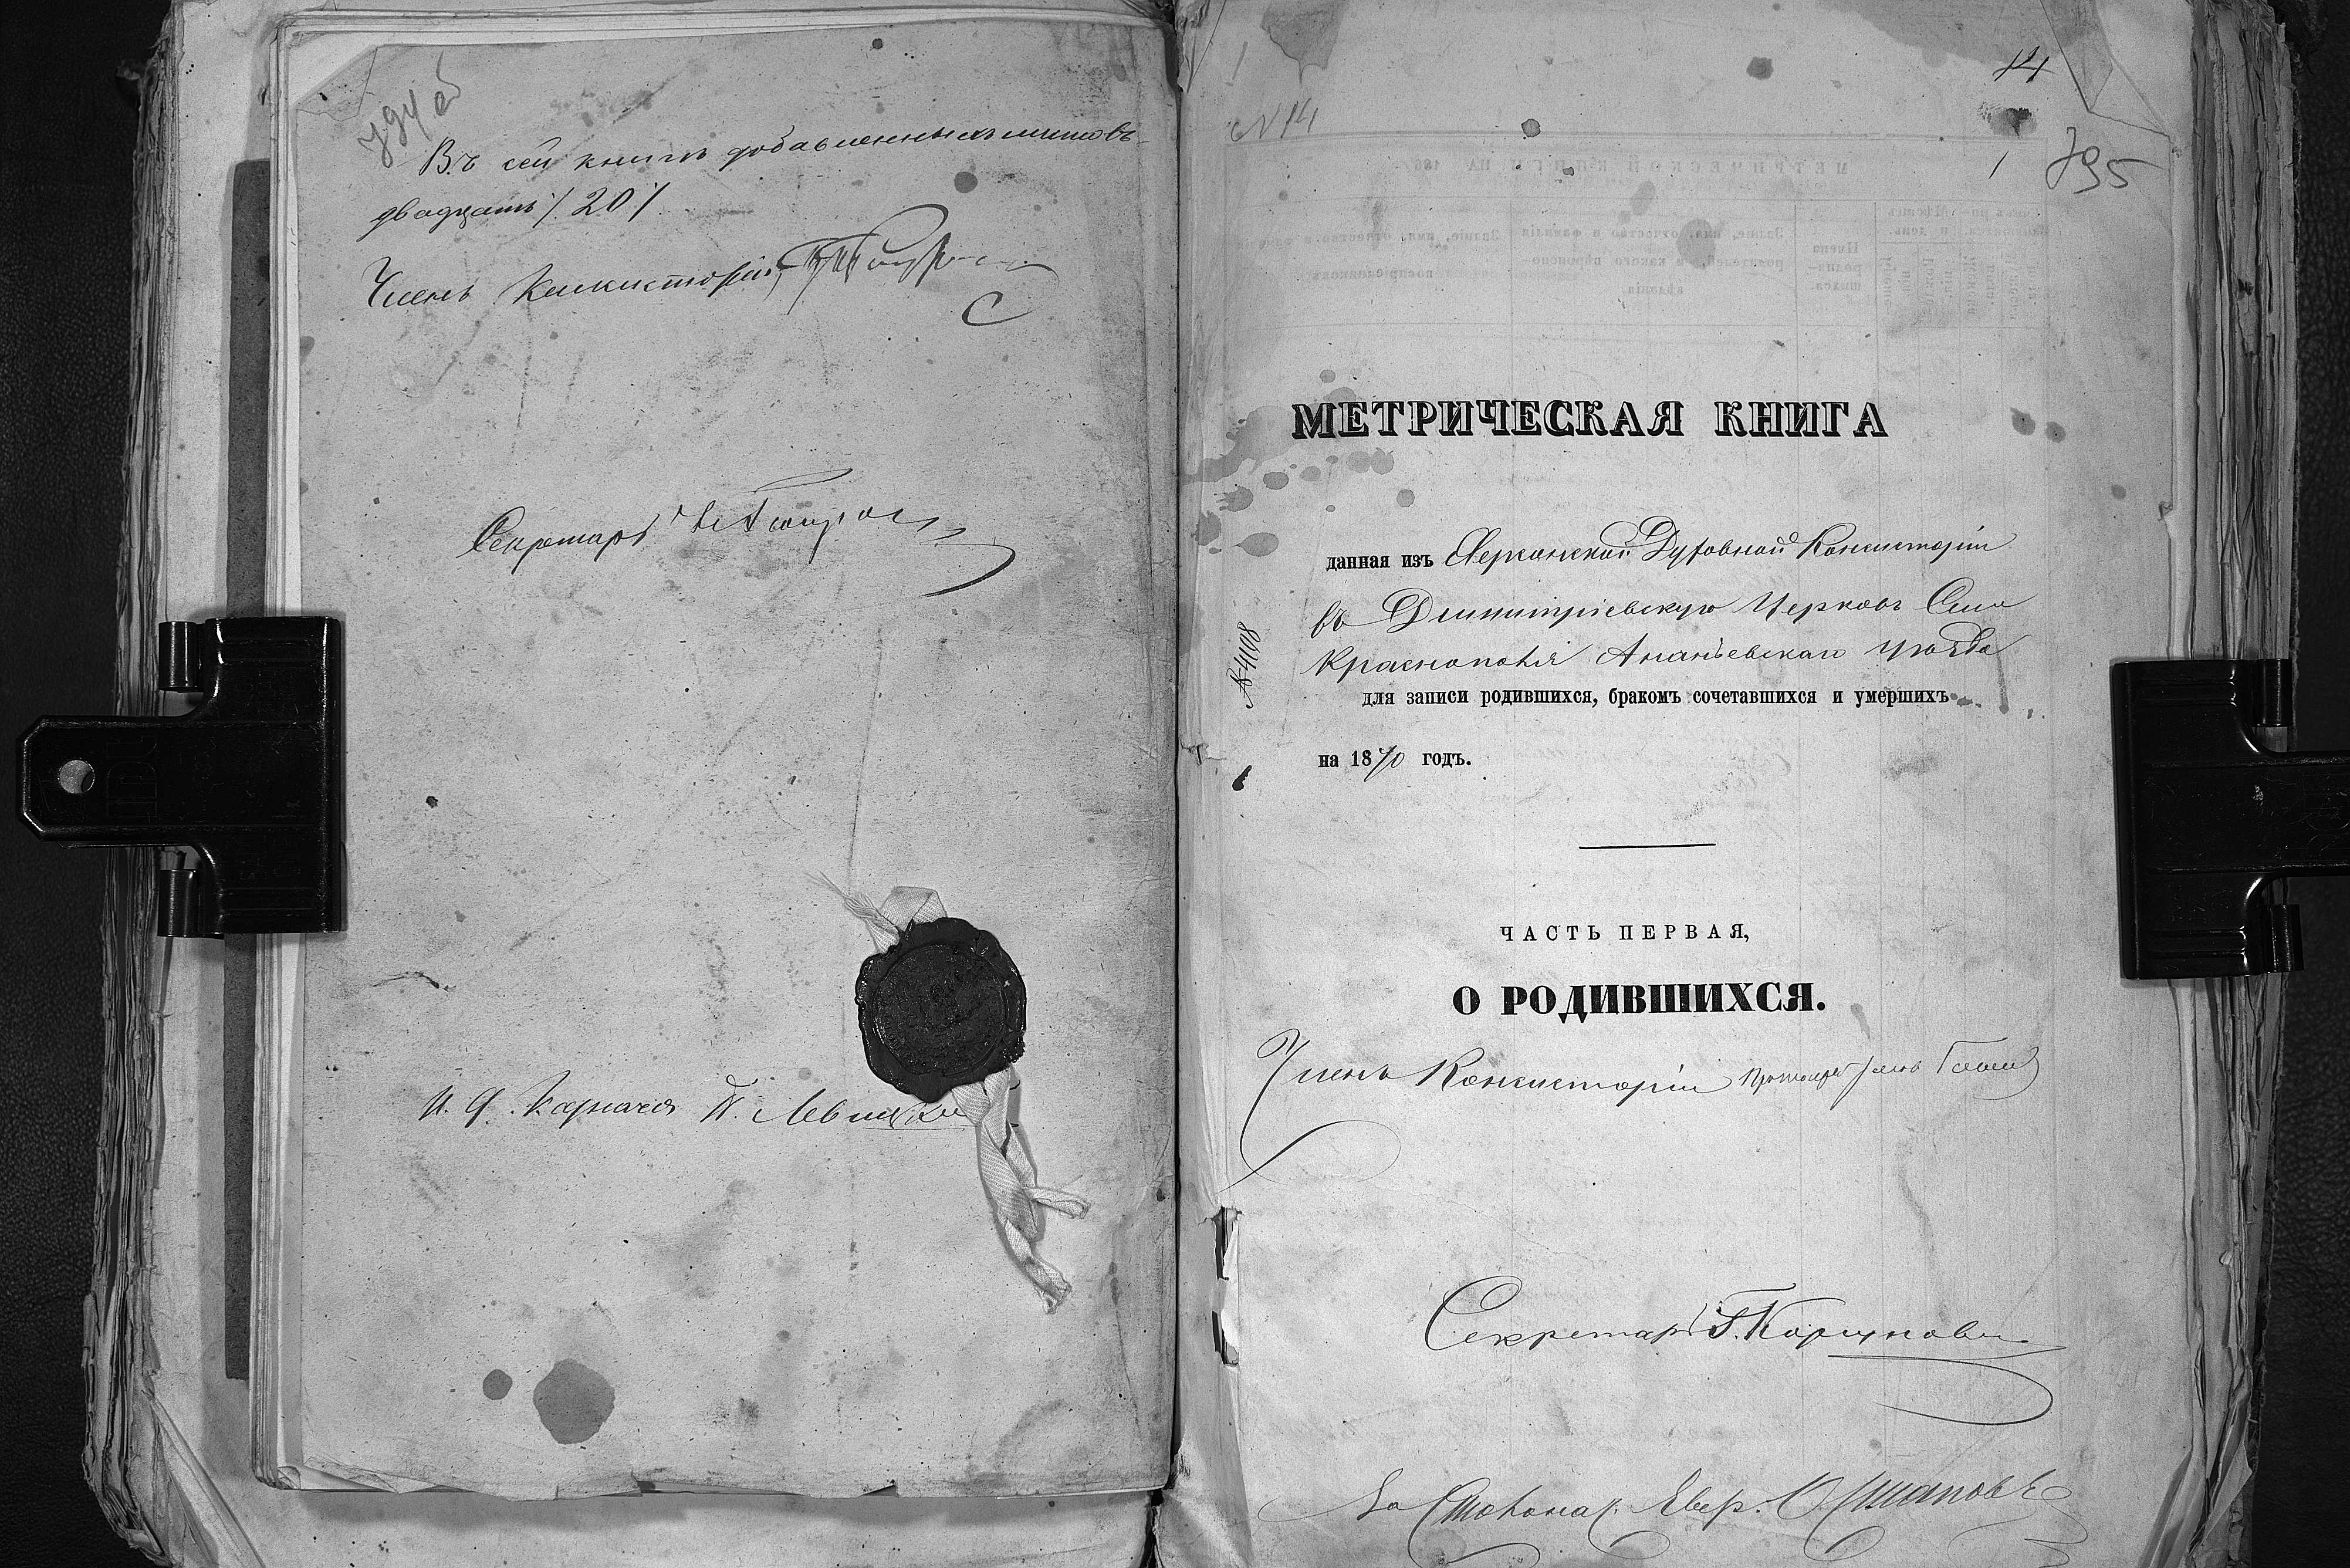 794 об
Въ сей книгѣ добавленныхъ листовъ
двадцать / 20 /
Членъ Консисторіи,
Секретарь
И. Д. Казначея П. Левицкій
14
N 14
1
795
МЕТРИЧЕСКАЯ КНИГА
данная изъ Херсонской Духовной Консисторіи
въ Димитріевскую Церковь Села
Краснополья Ананьевскаго уѣзда
№ 4118
для записи родившихся, бракомъ сочетавшихся и умершихъ
на 1870 годъ.
ЧАСТЬ ПЕРВАЯ,
О РОДИВШИХСЯ.
Членъ Консисторіи Протоіерей
Секретарь Г. Коруновъ
За Столонач.